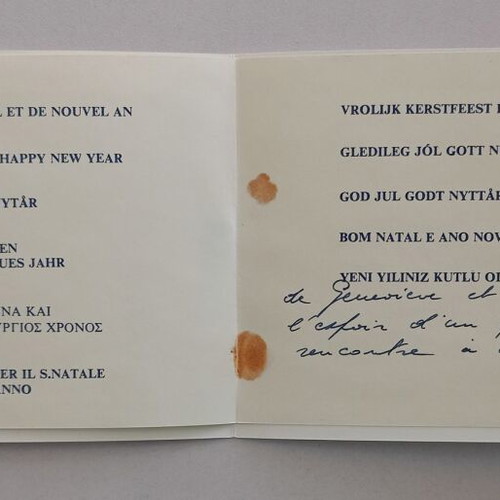 L ET DE NOUVEL AN
HAPPY NEW YEAR
YTÅR
EN
UES JAHR
ΝΑ ΚΑΙ
ΥΡΓΙΟΣ ΧΡΟΝΟΣ
ER IL S.NATALE
ANNO
VROLIJK KERSTFEEST
GLEDILEG JÓL GOTT N
GOD JUL GODT NYTTÅR
BOM NATAL E ANO NOV
YENI YILINIZ KUTLU OL
de Geneviève et
l'espoir d'un
rencontre à